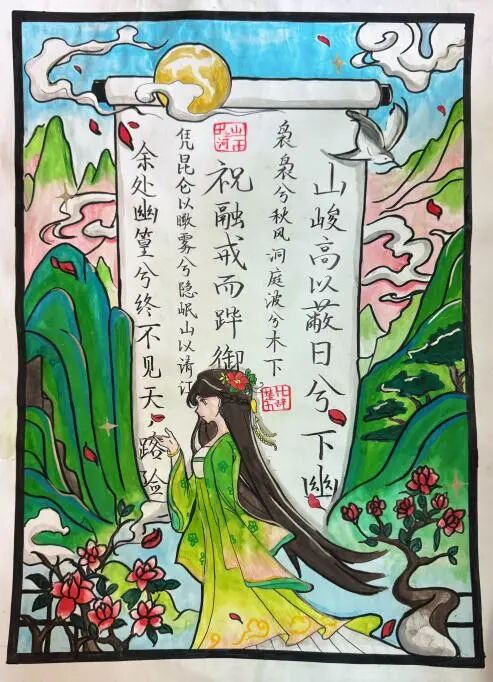 山峻高以蔽日兮下幽
袅袅兮秋风洞庭波兮木下
祝融戒而跸御
凭昆仑以瞰雾兮隐岷山以清江
余处幽篁兮终不见天，路险